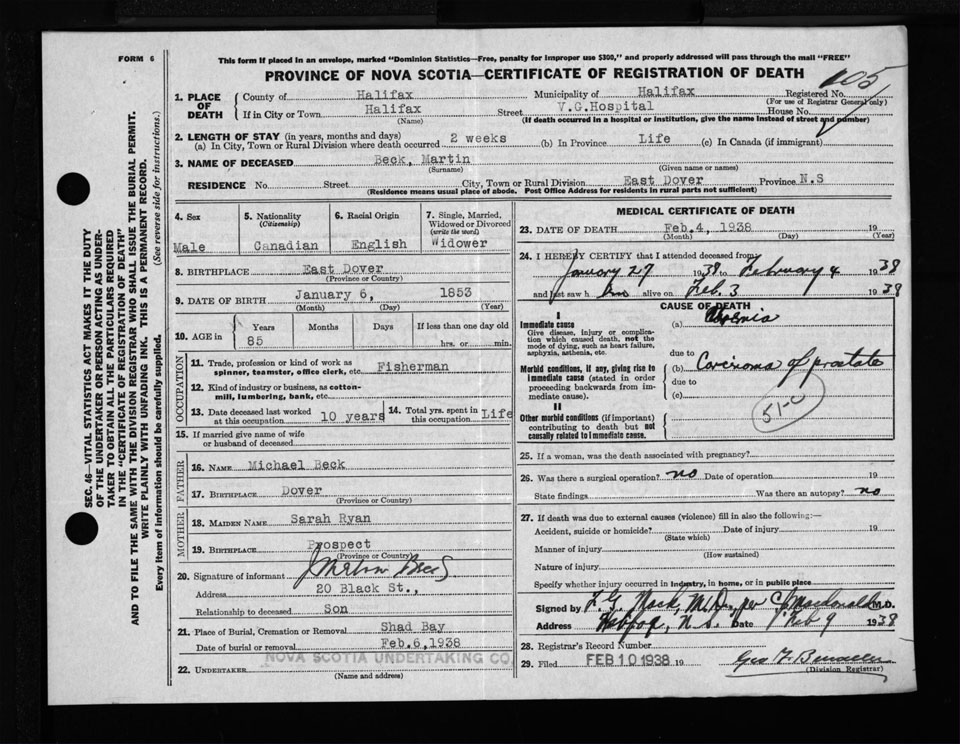 FORM 6
This form If placed in an envelope, marked "Dominion Statistics—Free, penalty for improper use $300," and properly addressed will pass through the mail "FREE"
PROVINCE OF NOVA SCOTIA—CERTIFICATE OF REGISTRATION OF DEATH
105
1. PLACE OF DEATH
County of Halifax Municipality of Halifax Registered No.
(For use of Registrar General only)
If in City or Town Halifax Street V.G.Hospital House No.
(Name) (If death occurred in a hospital or institution, give the name instead of street and number)
2. LENGTH OF STAY (in years, months and days)
(a) In City, Town or Rural Division where death occurred 2 weeks (b) In Province Life (c) In Canada (if immigrant)
3. NAME OF DECEASED Beck, Martin
(Surname) (Given name or names)
RESIDENCE No. Street City, Town or Rural Division East Dover Province N.S
(Residence means usual place of abode. Post Office Address for residents in rural parts not sufficient)
4. Sex Male
5. Nationality (Citizenship) Canadian
6. Racial Origin English
7. Single, Married, Widowed or Divorced (write the word) Widower
8. BIRTHPLACE East Dover
(Province or Country)
9. DATE OF BIRTH January 6, 1853
(Month) (Day) (Year)
10. AGE in Years Months Days If less than one day old
85 hrs. or min.
OCCUPATION
11. Trade, profession or kind of work as spinner, teamster, office clerk, etc. Fisherman
12. Kind of industry or business, as cotton-mill, lumbering, bank, etc.
13. Date deceased last worked at this occupation 10 years
14. Total yrs. spent in this occupation Life
15. If married give name of wife or husband of deceased
FATHER
16. NAME Michael Beck
17. BIRTHPLACE Dover
(Province or Country)
MOTHER
18. MAIDEN NAME Sarah Ryan
19. BIRTHPLACE Prospect
(Province or Country)
20. Signature of informant
Address 20 Black St.,
Relationship to deceased Son
21. Place of Burial, Cremation or Removal Shad Bay
Date of burial or removal Feb.6,1938
22. UNDERTAKER NOVA SCOTIA UNDERTAKING CO.
(Name and address)
MEDICAL CERTIFICATE OF DEATH
23. DATE OF DEATH Feb.4, 1938 19
(Month) (Day) (Year)
24. I HEREBY CERTIFY that I attended deceased from
January 27 1938 to February 4 1938
and last saw h im alive on Feb. 3 1938
CAUSE OF DEATH
I
Immediate cause
Give disease, injury or complication which caused death, not the mode of dying, such as heart failure, asphyxia, asthenia, etc.
(a)
due to
Morbid conditions, if any, giving rise to immediate cause (stated in order proceeding backwards from immediate cause).
(b) Carcinoma of prostate
due to
(c)
51-
II
Other morbid conditions (if important) contributing to death but not causally related to immediate cause.
25. If a woman, was the death associated with pregnancy?
26. Was there a surgical operation? no Date of operation 19
State findings Was there an autopsy? no
27. If death was due to external causes (violence) fill in also the following:—
Accident, suicide or homicide? Date of injury 19
(State which)
Manner of injury
(How sustained)
Nature of injury
Specify whether injury occurred in Industry, in home, or in public place
Signed by F. G. Mack M.D. per M.D.
Address N.S. Date Feb 9 1938
28. Registrar's Record Number
29. Filed FEB 10 1938 19
(Division Registrar)
SEC. 46—VITAL STATISTICS ACT MAKES IT THE DUTY
OF THE UNDERTAKER OR PERSON ACTING AS UNDER-
TAKER TO OBTAIN ALL THE PARTICULARS REQUIRED
IN THE "CERTIFICATE OF REGISTRATION OF DEATH"
AND TO FILE THE SAME WITH THE DIVISION REGISTRAR WHO SHALL ISSUE THE BURIAL PERMIT.
WRITE PLAINLY WITH UNFADING INK. THIS IS A PERMANENT RECORD.
Every item of information should be carefully supplied. (See reverse side for instructions.)